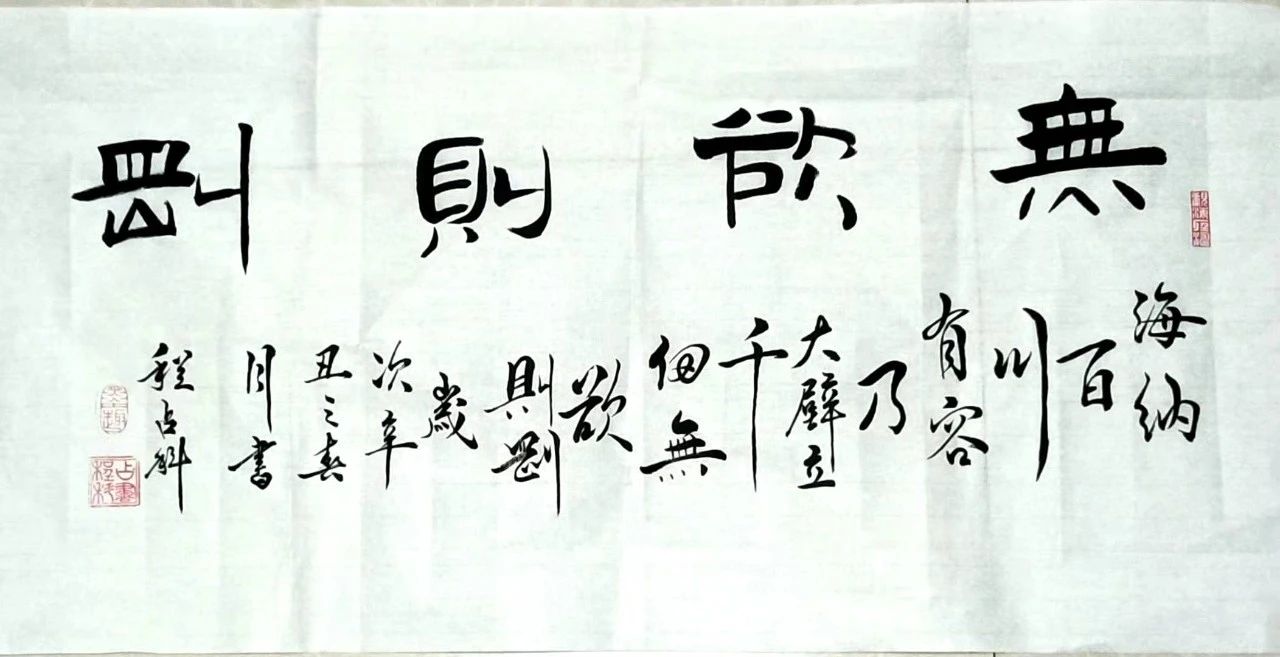 無欲則剛
海納
百
川
有容
乃
大壁立
千
仞無
欲
則剛
歲
次辛
丑之春
月書
程占斛